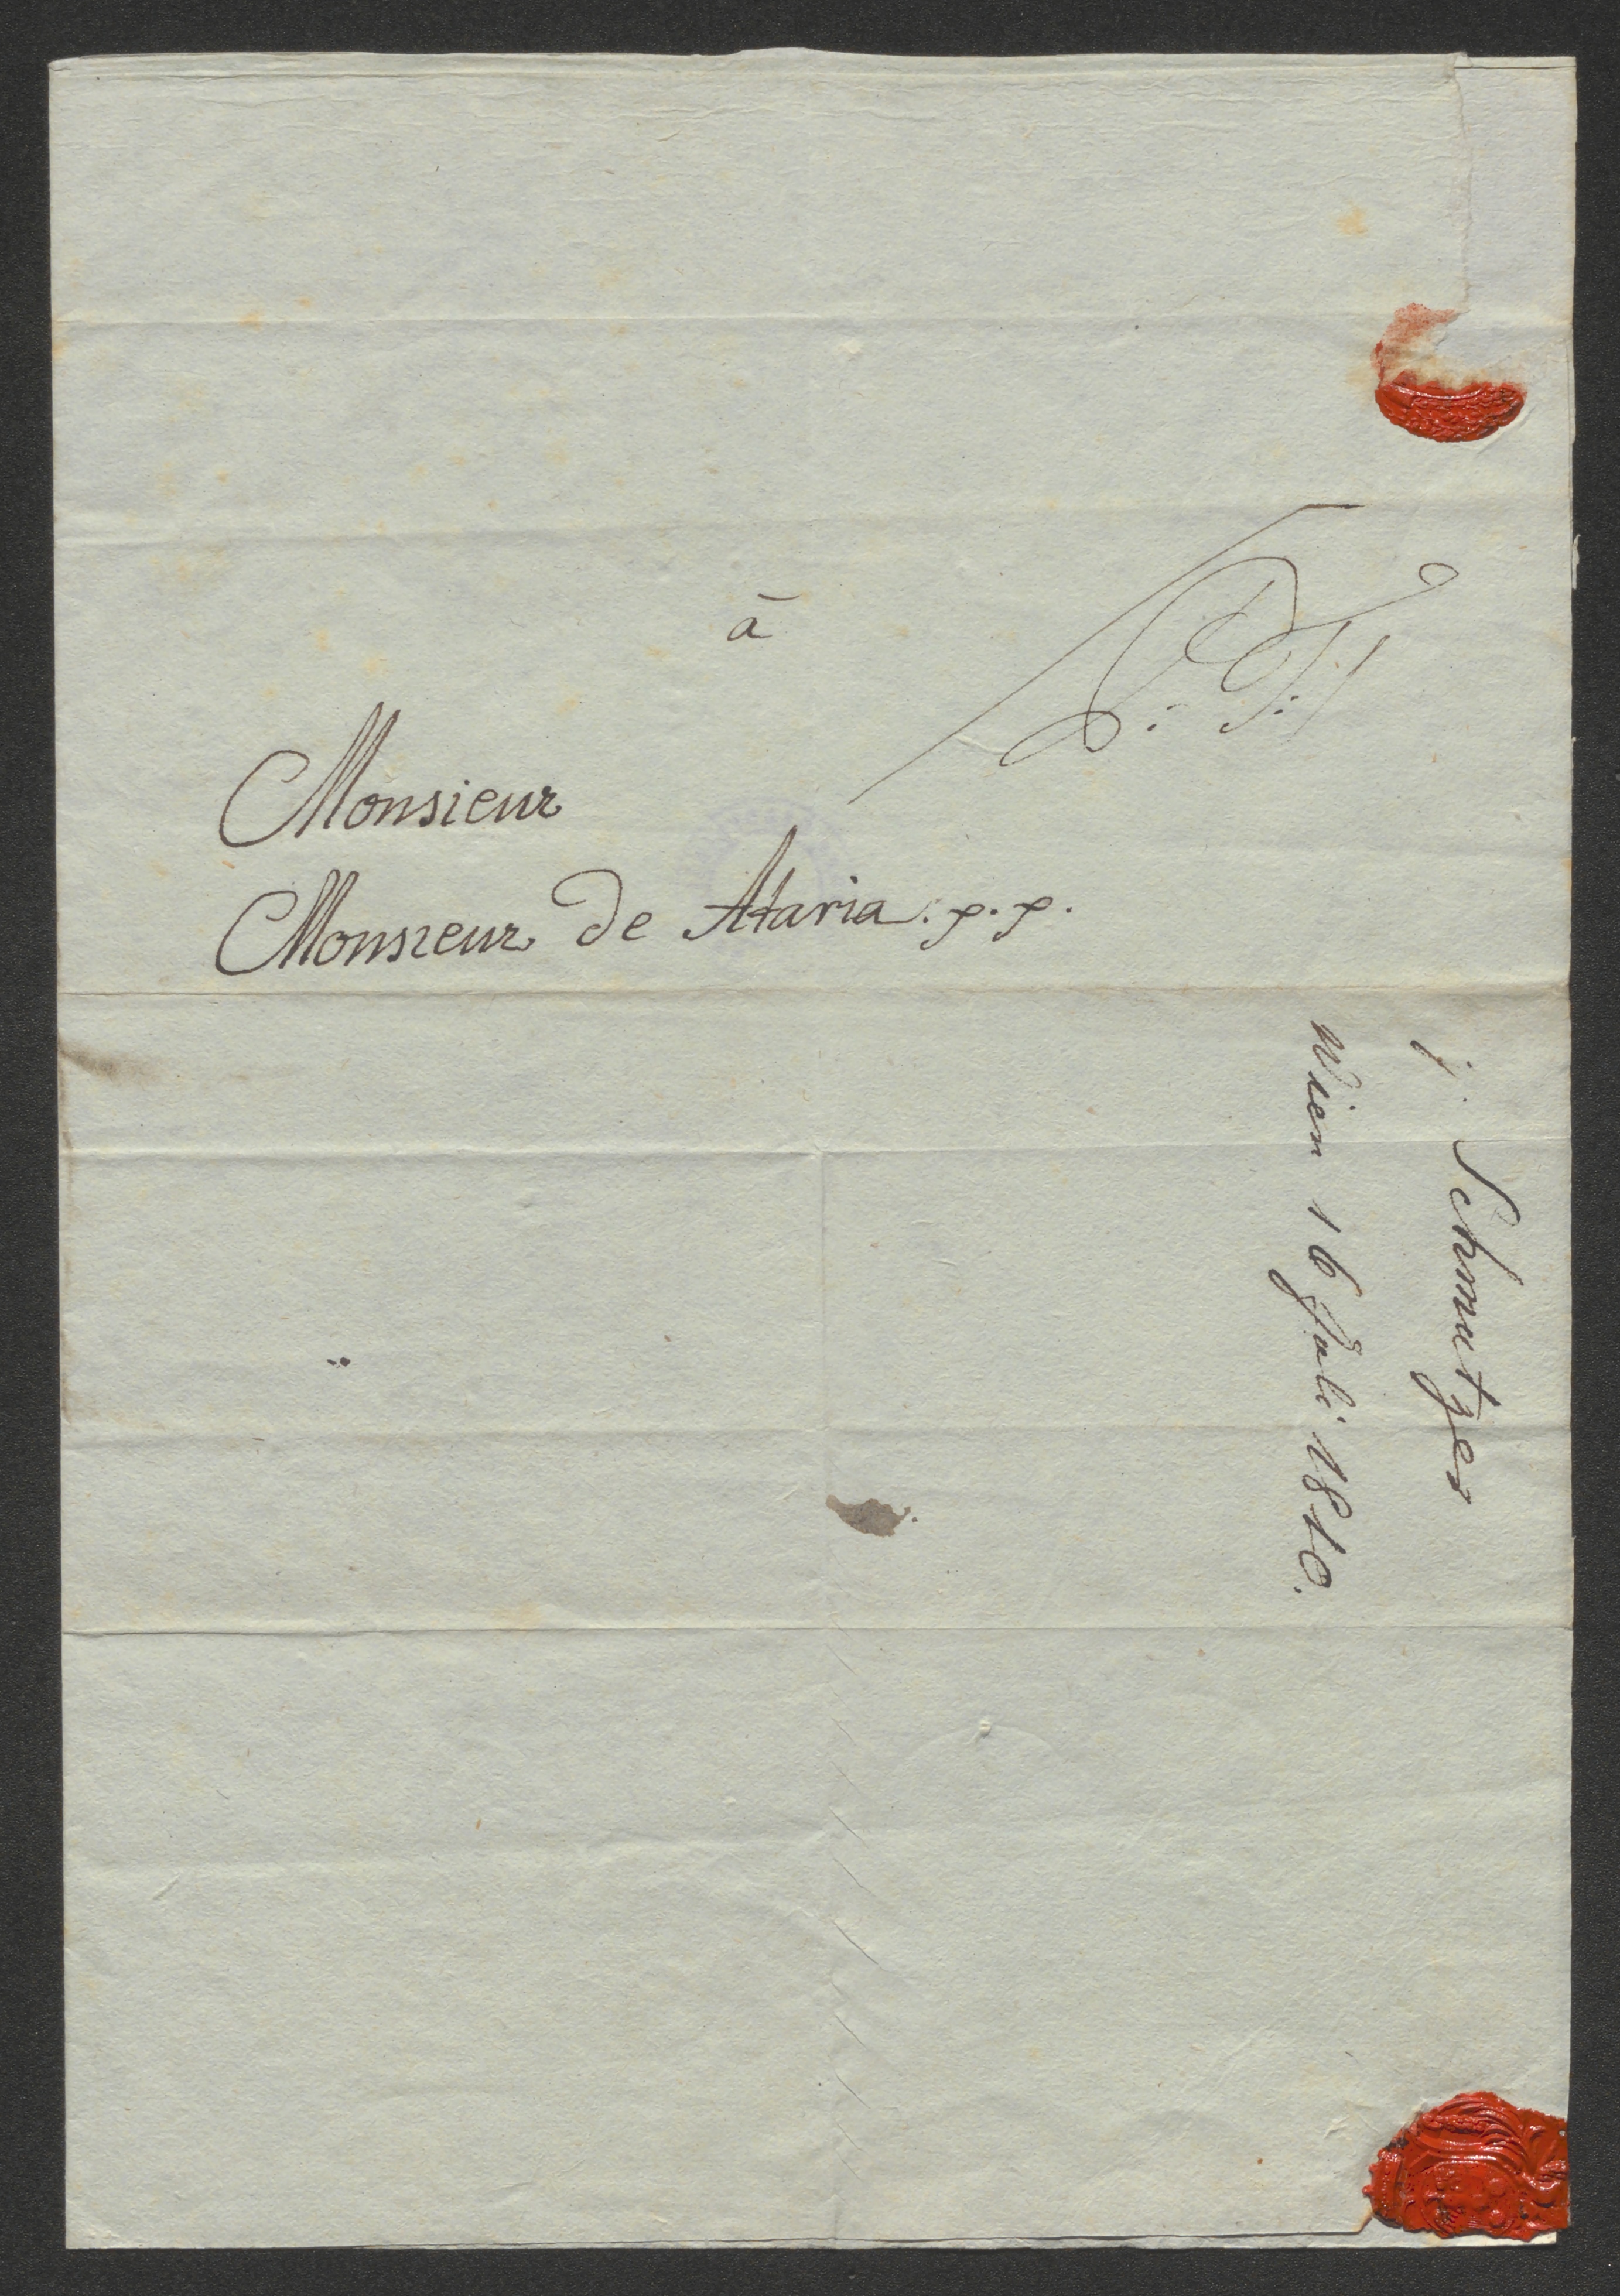 à
P: T:
Monsieur
Monsieur de Ataria. p. p.
j. Schmutzer
Wien 16 Juli 1810.